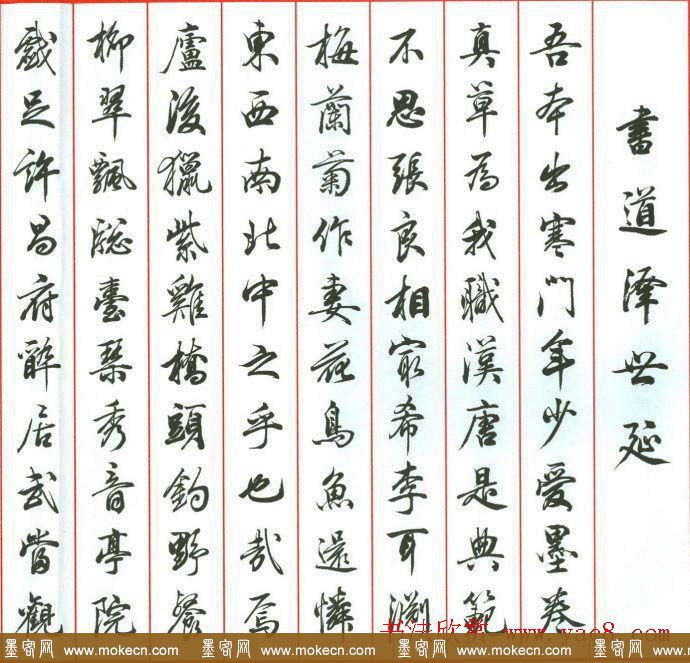 書道澤世延
吾本出寒門年少愛墨卷
真草為我職漢唐是典範
不思張良相最希李耳淵
梅蘭菊作妻花鳥魚還憐
東西南北中之乎也哉焉
廬後獵紫雞橋頭釣野餐
柳翠飄臺琴秀音亭院
戲足許昌府醉居武當觀
书法欣赏 www.yac8.com
墨客网 www.mokecn.com 墨客网 www.mokecn.com 墨客网 www.mokecn.com 墨客网 www.mokecn.com